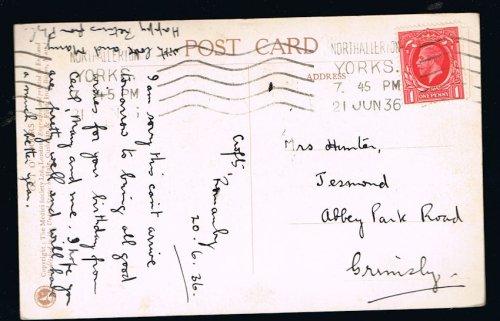 POST CARD
NORTHALLERTON
YORKS.
7. 45 PM
21 JUN 36
NORTHALLERTON
YORKS
45 PM
ADDRESS
1 ONE PENNY 1
Romanby
20.6.36.
I am sorry this can't arrive
tomorrow to bring all good
wishes for your birthday from
Cecil, Mary and me. I hope you
are pretty well and will have
a much better year.
with love and Many
Happy Returns from
Mrs Hunter,
Jesmond
Abbey Park Road
Grimsby.